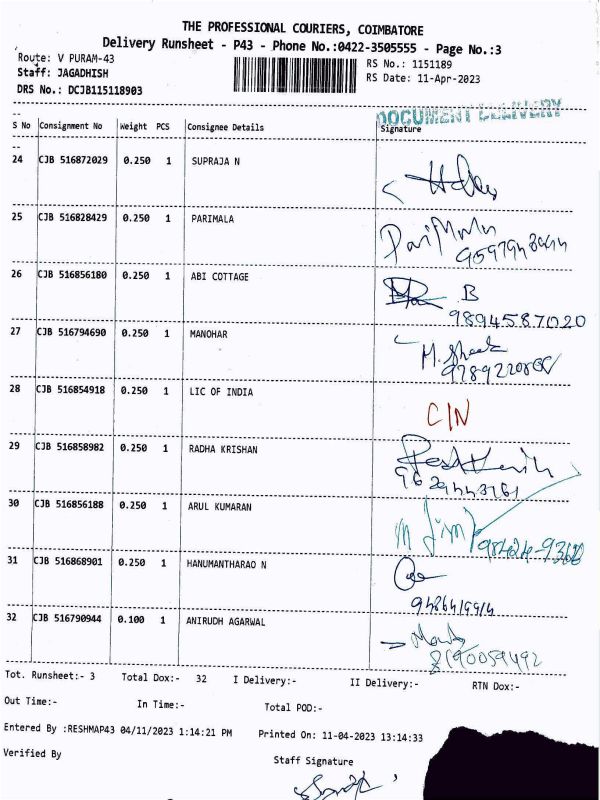 THE PROFESSIONAL COURIERS, COIMBATORE
Delivery Runsheet - P43 - Phone No.:0422-3505555 - Page No.:3
Route: V PURAM-43 RS No.: 1151189
Staff: JAGADHISH RS Date: 11-Apr-2023
DRS No.: DCJB115118903
DOCUMENT DELIVERY
S No Consignment No Weight PCS Consignee Details Signature
24 CJB 516872029 0.250 1 SUPRAJA N
25 CJB 516828429 0.250 1 PARIMALA
26 CJB 516856180 0.250 1 ABI COTTAGE B
9894587020
27 CJB 516794690 0.250 1 MANOHAR
28 CJB 516854918 0.250 1 LIC OF INDIA
29 CJB 516858982 0.250 1 RADHA KRISHAN
30 CJB 516856188 0.250 1 ARUL KUMARAN
31 CJB 516868901 0.250 1 HANUMANTHARAO N
32 CJB 516790944 0.100 1 ANIRUDH AGARWAL
8190059492
Tot. Runsheet:- 3 Total Dox:- 32 I Delivery:- II Delivery:- RTN Dox:-
Out Time:- In Time:- Total POD:-
Entered By :RESHMAP43 04/11/2023 1:14:21 PM Printed On: 11-04-2023 13:14:33
Verified By
Staff Signature